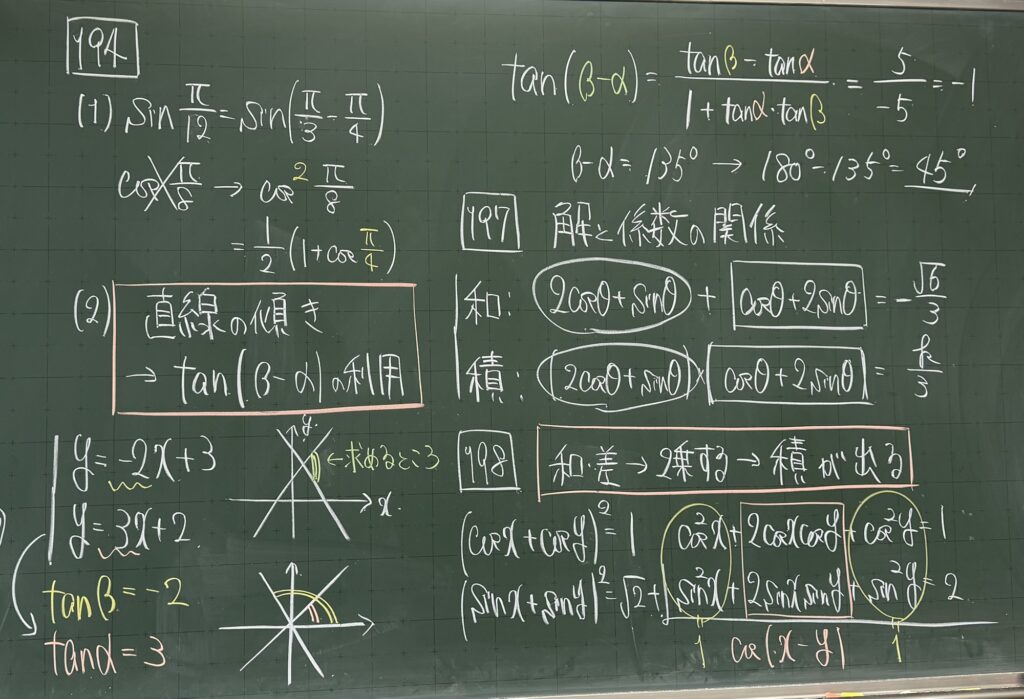 194
(1) sin π/12 = sin(π/3 - π/4)
cos π/8 → cos² π/8
= 1/2 (1 + cos π/4)
(2) 直線の傾き
→ tan(β-α)の利用
y = -2x+3
y = 3x+2
tanβ = -2
tanα = 3
y
←求めるところ
x
tan(β-α) = (tanβ - tanα)/(1 + tanα・tanβ) = 5/-5 = -1
β-α = 135° → 180°-135° = 45°
197 解と係数の関係
和: 2cosθ+sinθ + cosθ+2sinθ = -√6/3
積: (2cosθ+sinθ)(cosθ+2sinθ) = k/3
198 和・差→2乗する→積が出る
(cosx+cosy)² = 1 cos²x + 2cosxcosy + cos²y = 1
(sinx+siny)² = √2+1 sin²x + 2sinxsiny + sin²y = 2
1 cos(x-y) 1